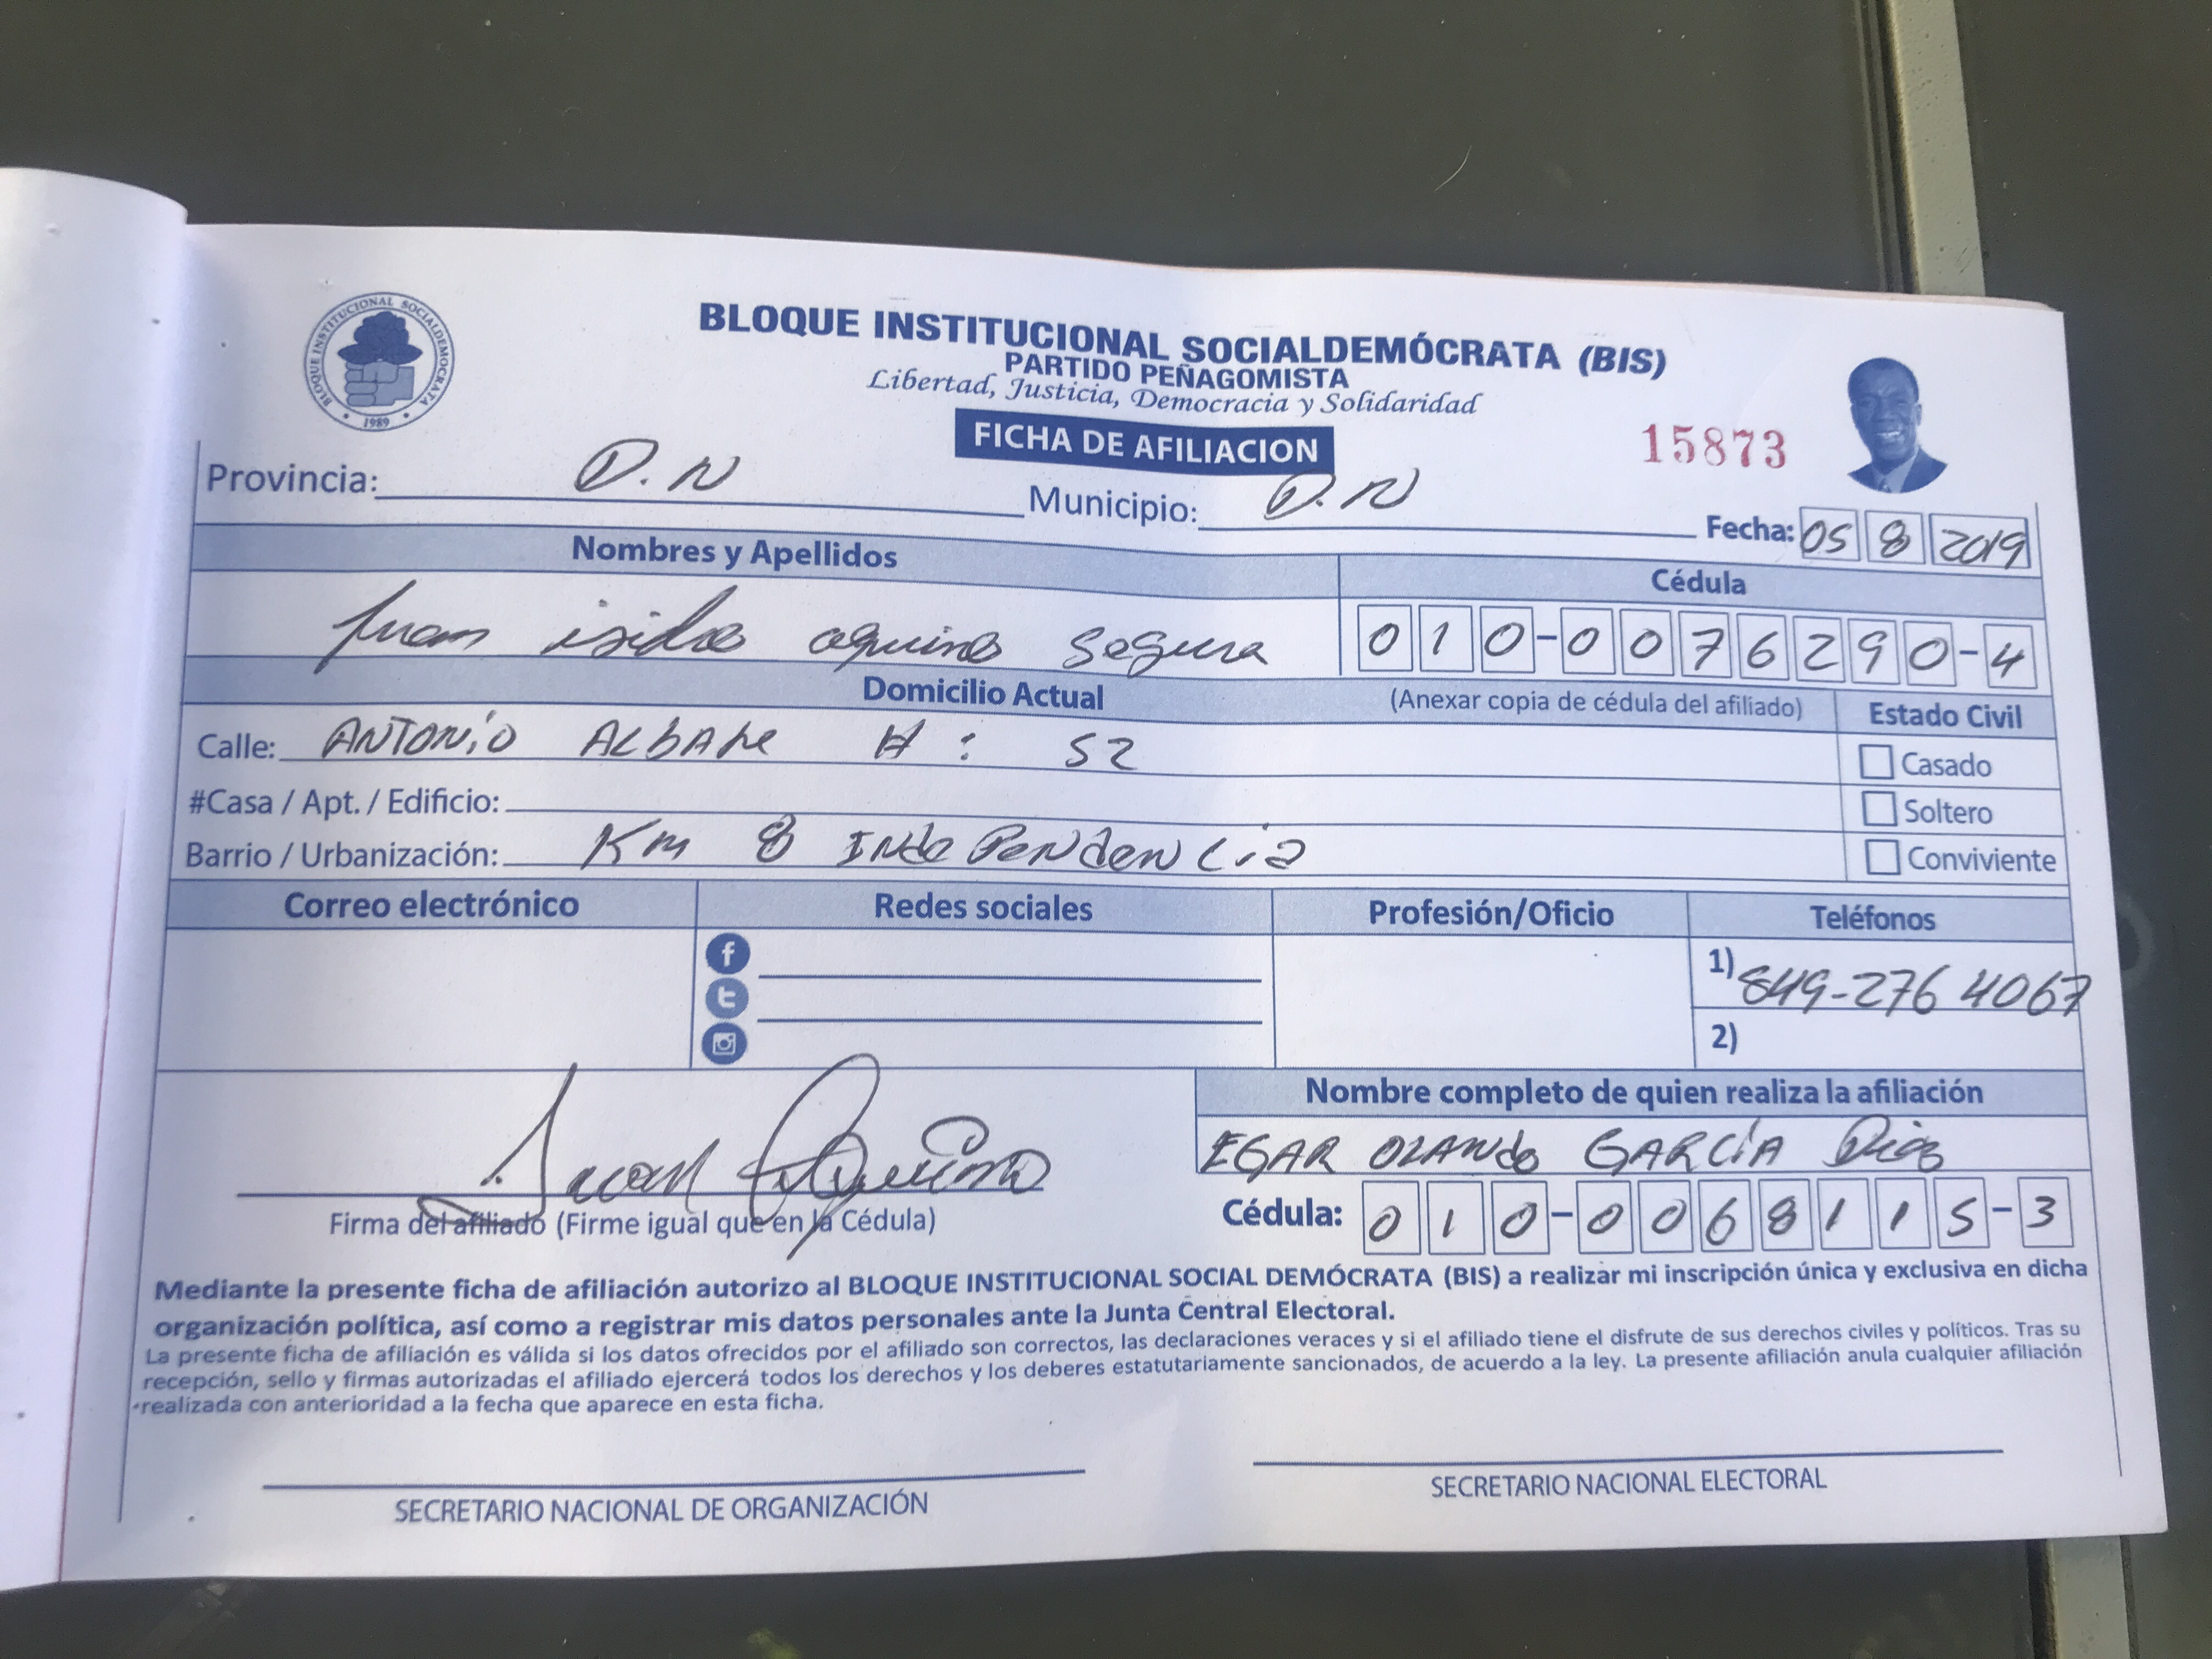 BLOQUE INSTITUCIONAL SOCIALDEMOCRATA
1989
BLOQUE INSTITUCIONAL SOCIALDEMÓCRATA (BIS)
PARTIDO PEÑAGOMISTA
Libertad, Justicia, Democracia y Solidaridad
FICHA DE AFILIACION
15873
Provincia: D.N Municipio: D.N Fecha: 05 8 2019
Nombres y Apellidos Cédula
Juan isidro aquino Segura 010-0076290-4
Domicilio Actual (Anexar copia de cédula del afiliado) Estado Civil
Calle: ANTONiO # : 52 Casado
#Casa / Apt. / Edificio: Soltero
Barrio / Urbanización: Km 8 INdePeNdenCia Conviviente
Correo electrónico Redes sociales Profesión/Oficio Teléfonos
1) 849-276 4067
2)
Nombre completo de quien realiza la afiliación
EGAR OLANdo GARCÍA
Juan Aquino
Firma del afiliado (Firme igual que en la Cédula) Cédula: 010-0068115-3
Mediante la presente ficha de afiliación autorizo al BLOQUE INSTITUCIONAL SOCIAL DEMÓCRATA (BIS) a realizar mi inscripción única y exclusiva en dicha
organización política, así como a registrar mis datos personales ante la Junta Central Electoral.
La presente ficha de afiliación es válida si los datos ofrecidos por el afiliado son correctos, las declaraciones veraces y si el afiliado tiene el disfrute de sus derechos civiles y políticos. Tras su
recepción, sello y firmas autorizadas el afiliado ejercerá todos los derechos y los deberes estatutariamente sancionados, de acuerdo a la ley. La presente afiliación anula cualquier afiliación
realizada con anterioridad a la fecha que aparece en esta ficha.
SECRETARIO NACIONAL DE ORGANIZACIÓN SECRETARIO NACIONAL ELECTORAL